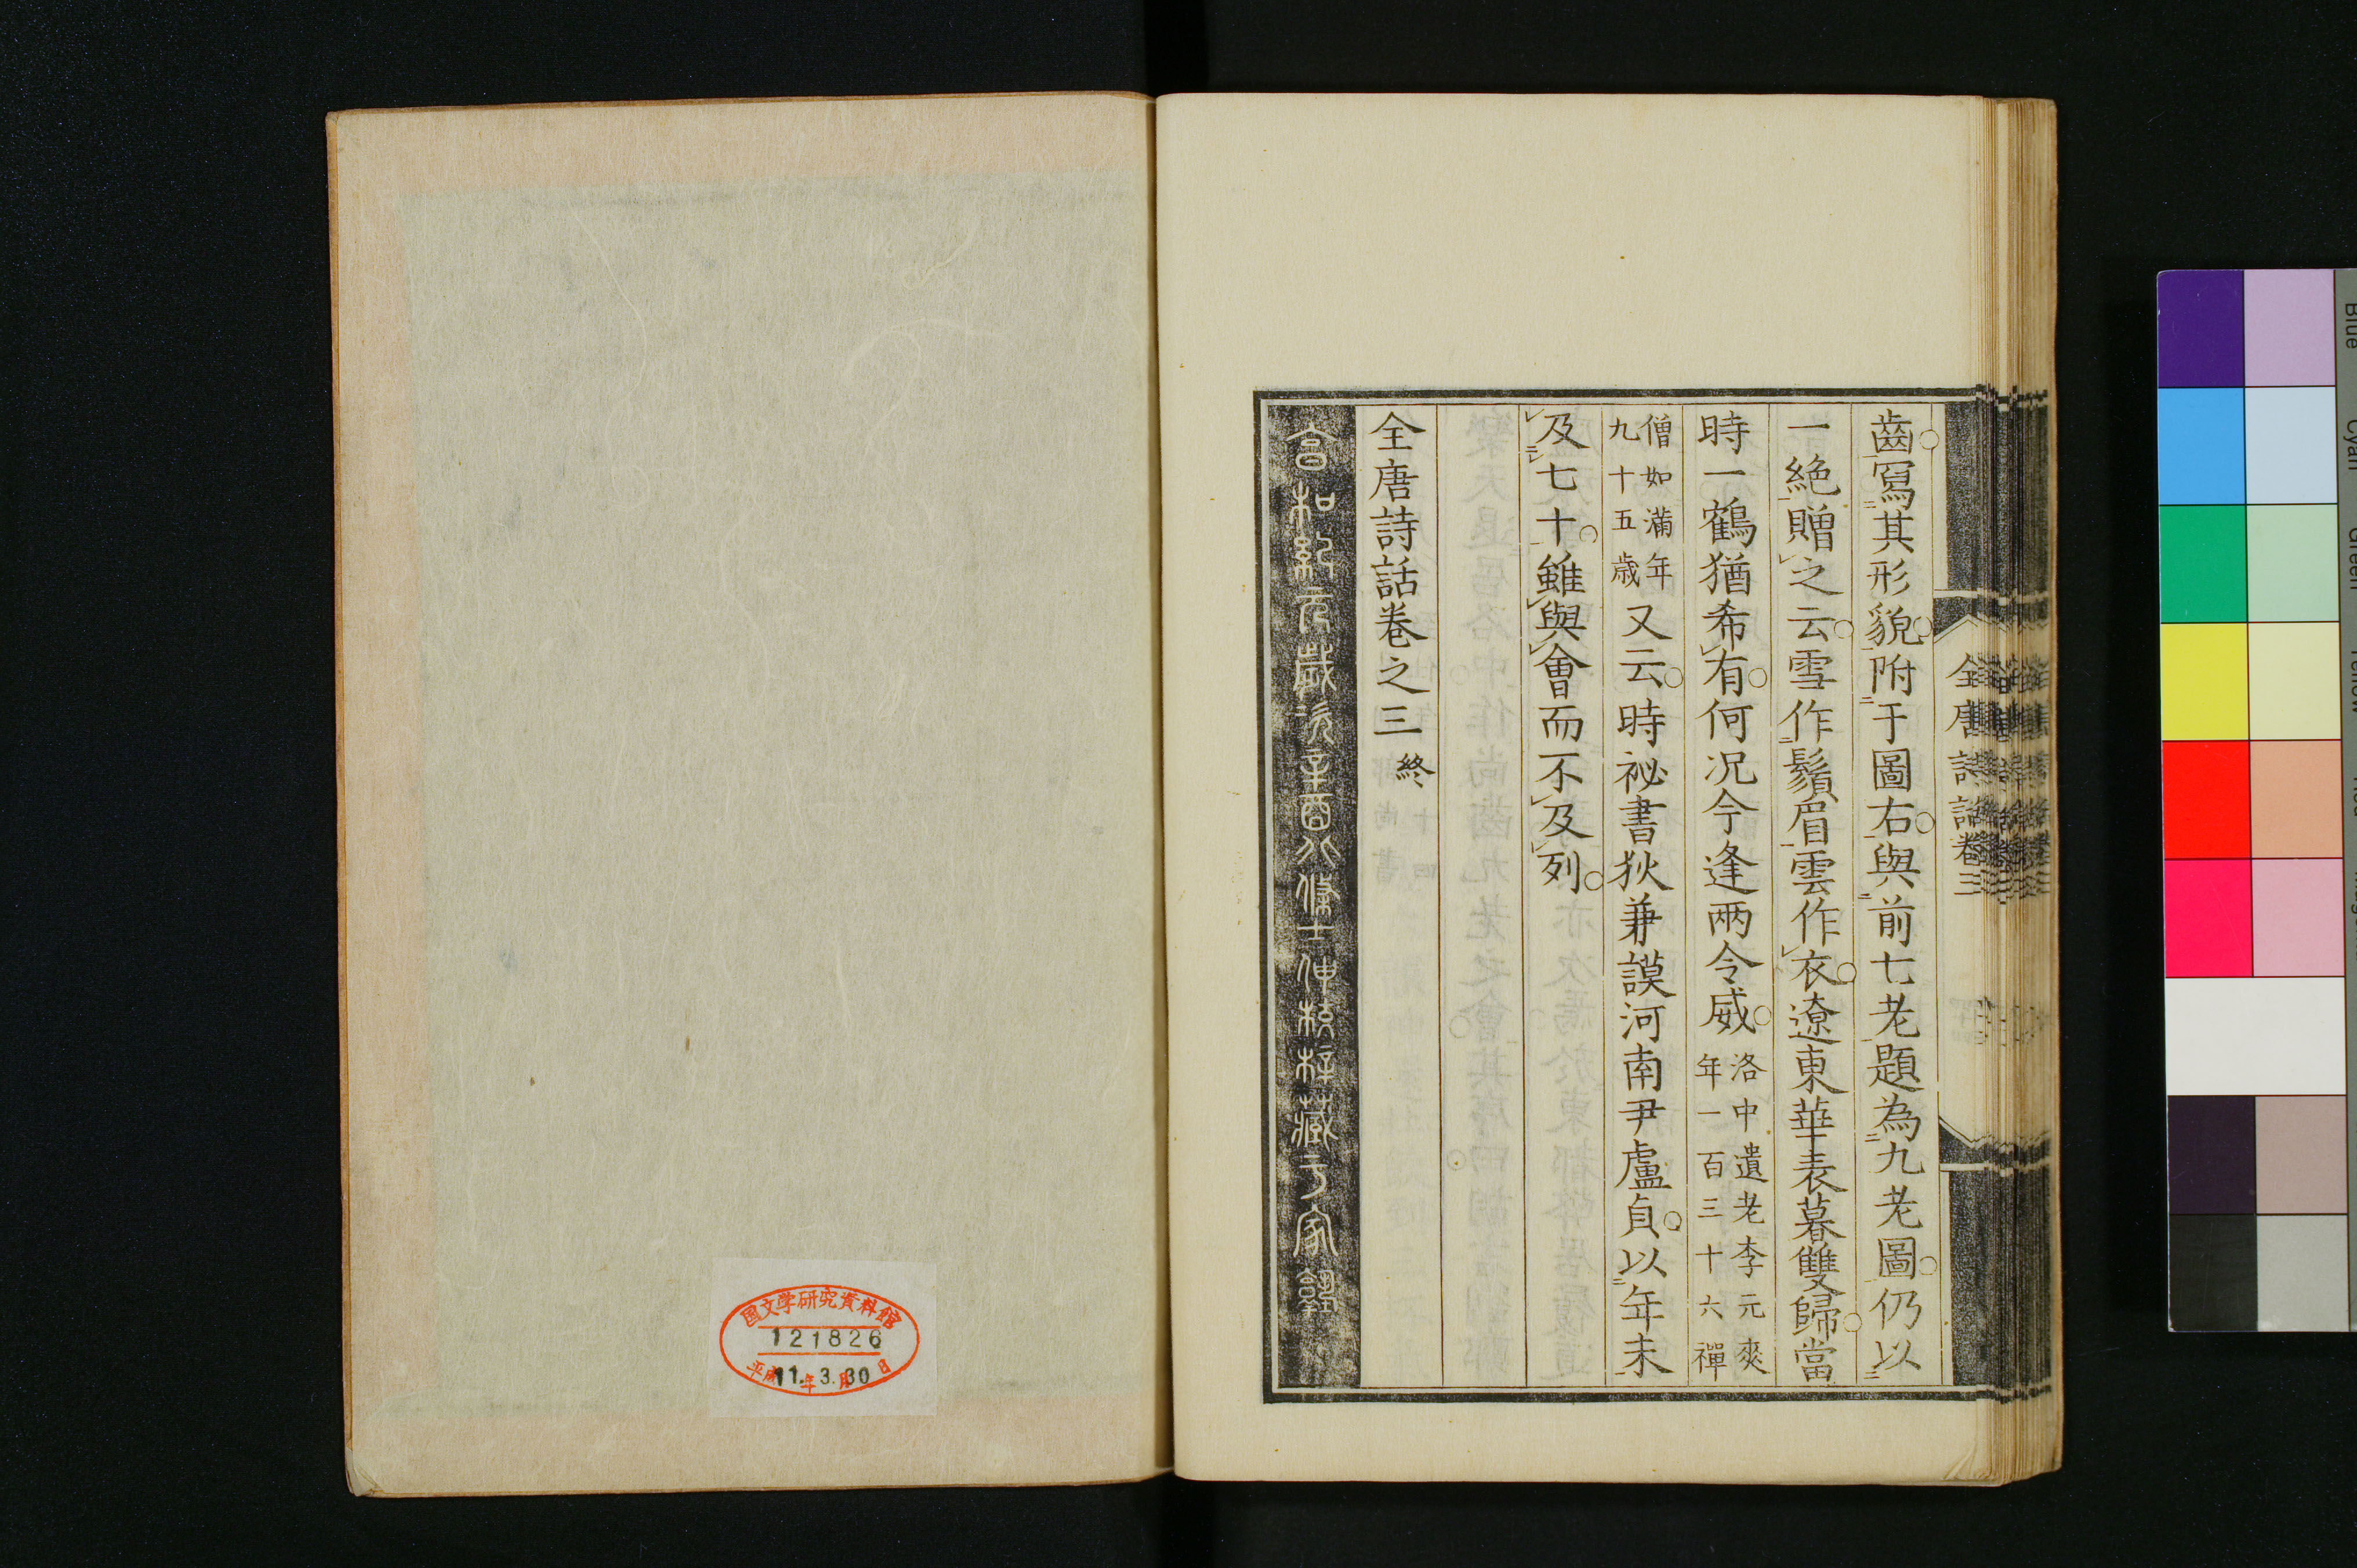 齒寫其形貌附于圖右與前七老題為九老圖仍以
一絶贈之云雪作鬚眉雲作衣遼東華表暮雙歸當
時一鶴猶希有何况今逢兩令威
洛中遺老李元爽
年一百三十六禪
僧如滿年
九十五歳
又云時祕書狄兼謨河南尹盧貞以年未
及七十雖與會而不及列
全唐詩話卷之三終
全唐詩話卷三
国文学研究資料館
121826
平成11年3月30日
Blue
Cyan
Green
Yellow